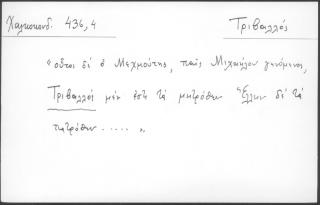 Χαλκοκονδ. 436,4
Τριβαλλός
"οὗτος δὲ ὁ Μεχμούτης, παῖς Μιχαήλου γενόμενος,
Τριβαλλὸς μὲν ἐστι τὰ μητρόθεν Ἕλλην δὲ τὰ
πατρόθεν ..... "